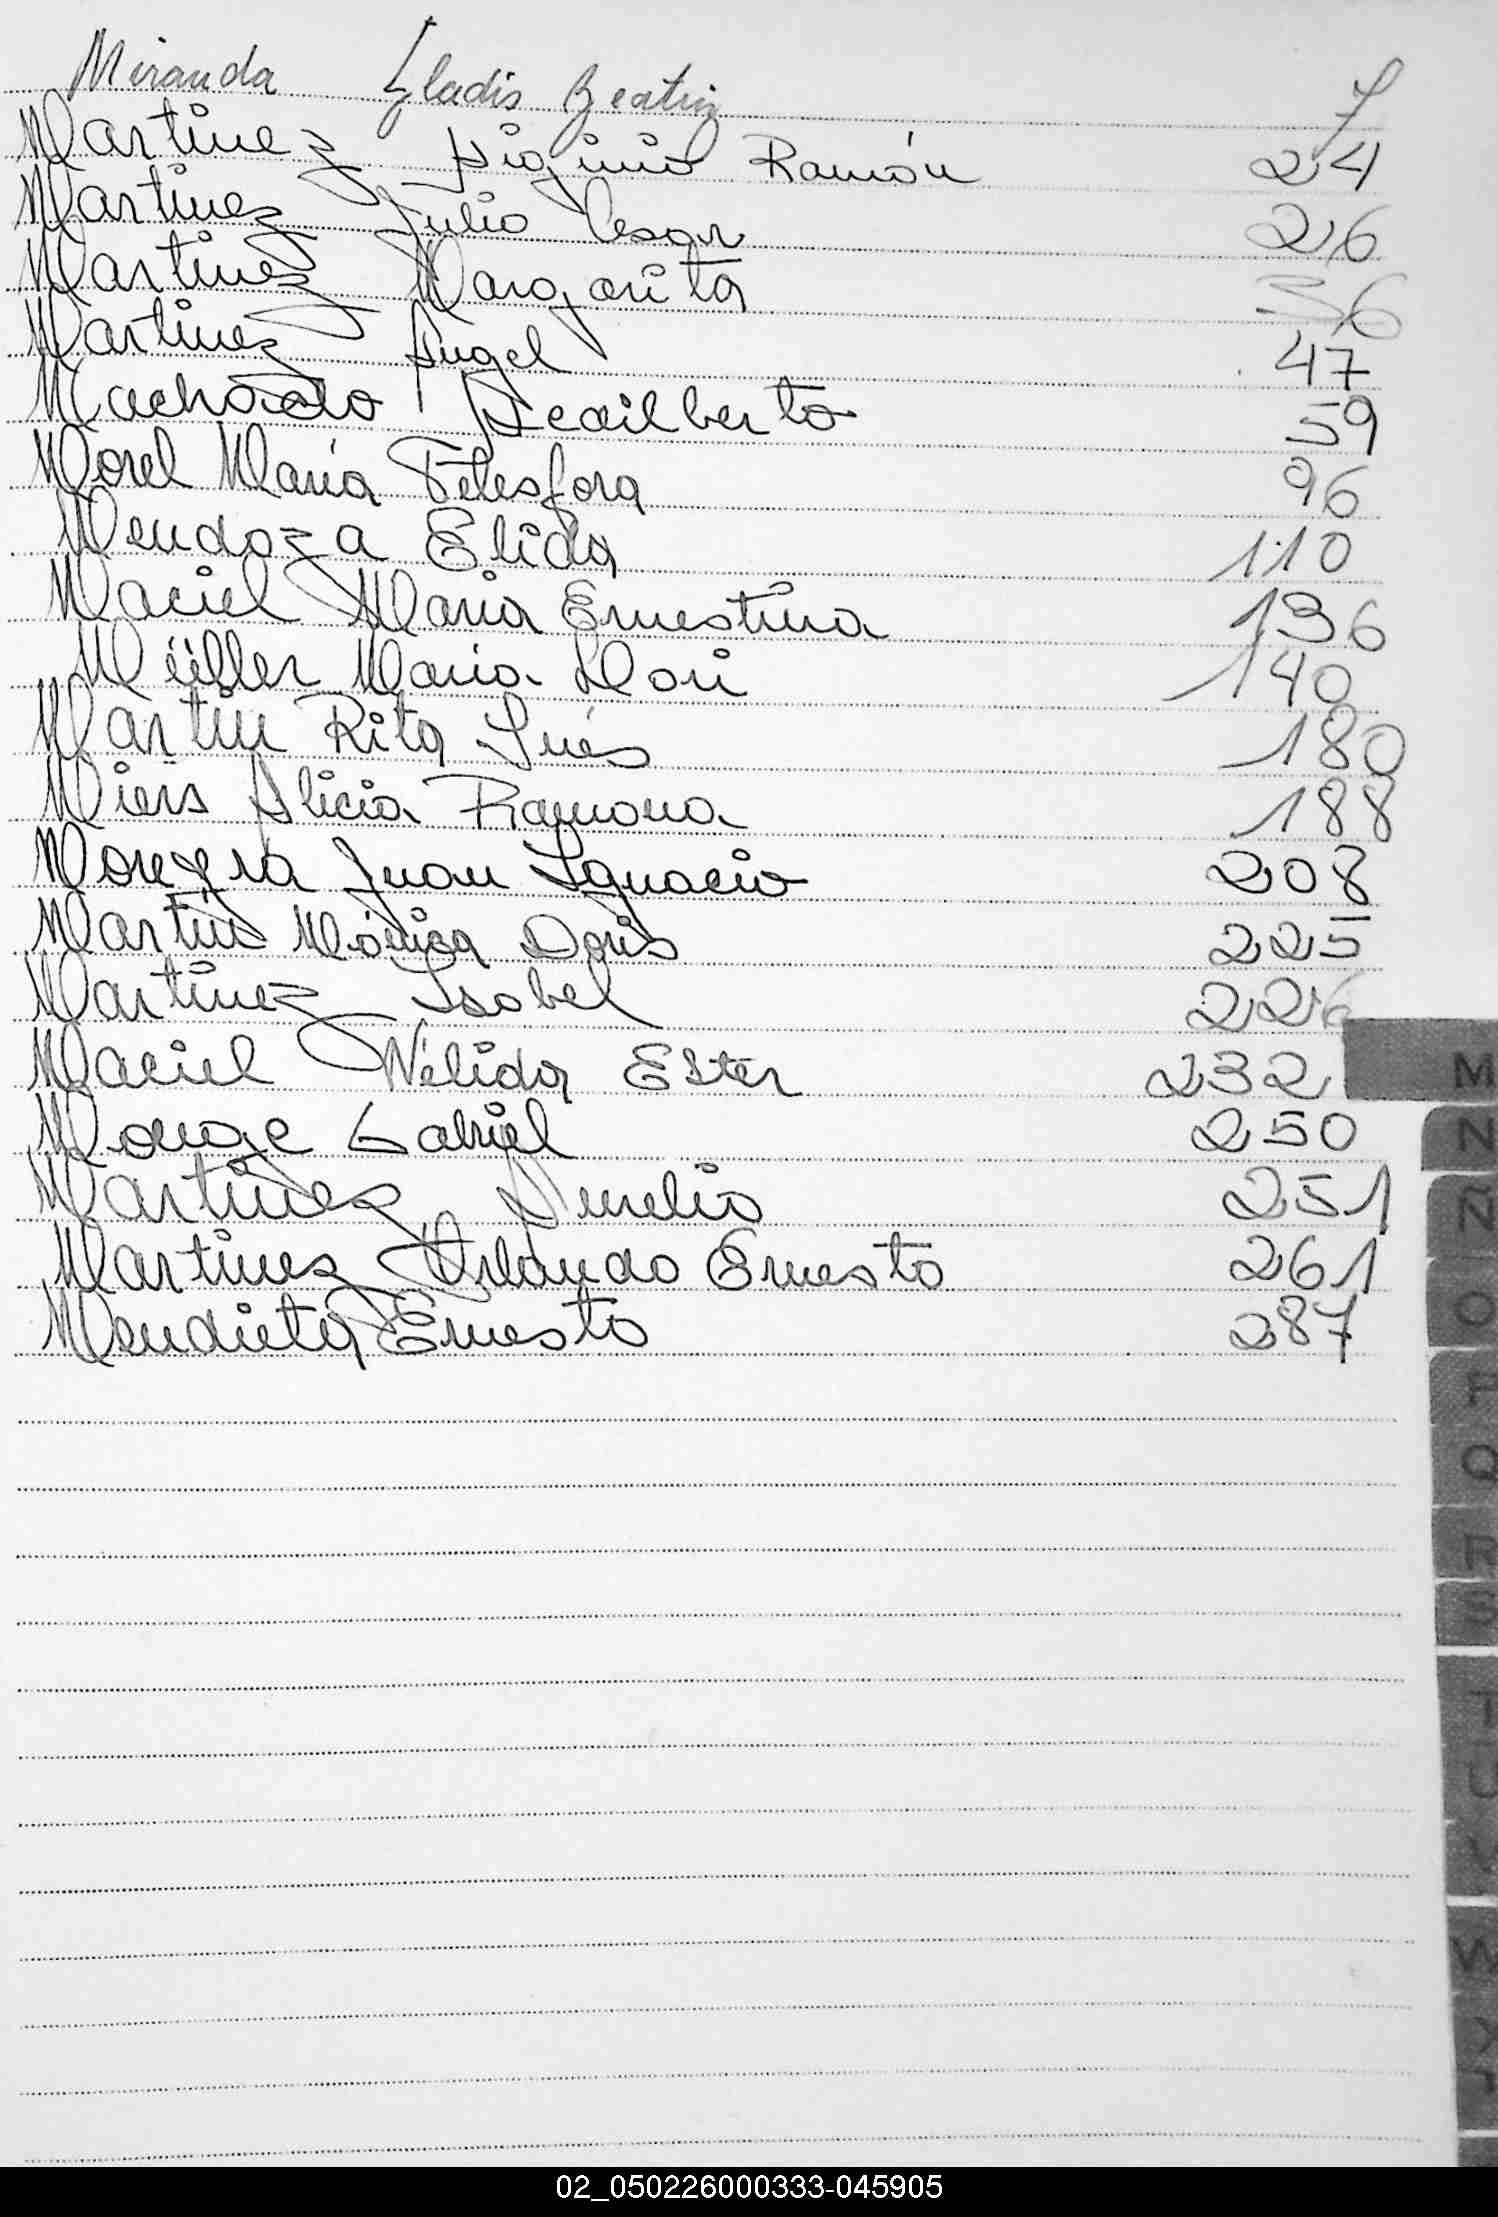 Miranda Gladis Beatriz 7
Martinez Higinio Ramón 24
Martinez Julio Cesar 26
Martinez Margarita 36
Martinez Angel 47
Machado Adilberto 59
Morel Maria Telesfora 96
Mendoza Elida 110
Maciel Maria Ernestina 136
Müller Maria Mari 140
Martin Rita Inés 180
Miers Alicia Ramona 188
Moreyra Juan Ignacio 208
Martins Mónica Doris 225
Martinez Isabel 226
Maciel Nélida Ester 232
Monge Gabriel 250
Martinez Aurelio 251
Martinez Orlando Ernesto 261
Mendieta Ernesto 287
M
N
Ñ
O
P
Q
R
S
T
U
V
W
X
02_050226000333-045905